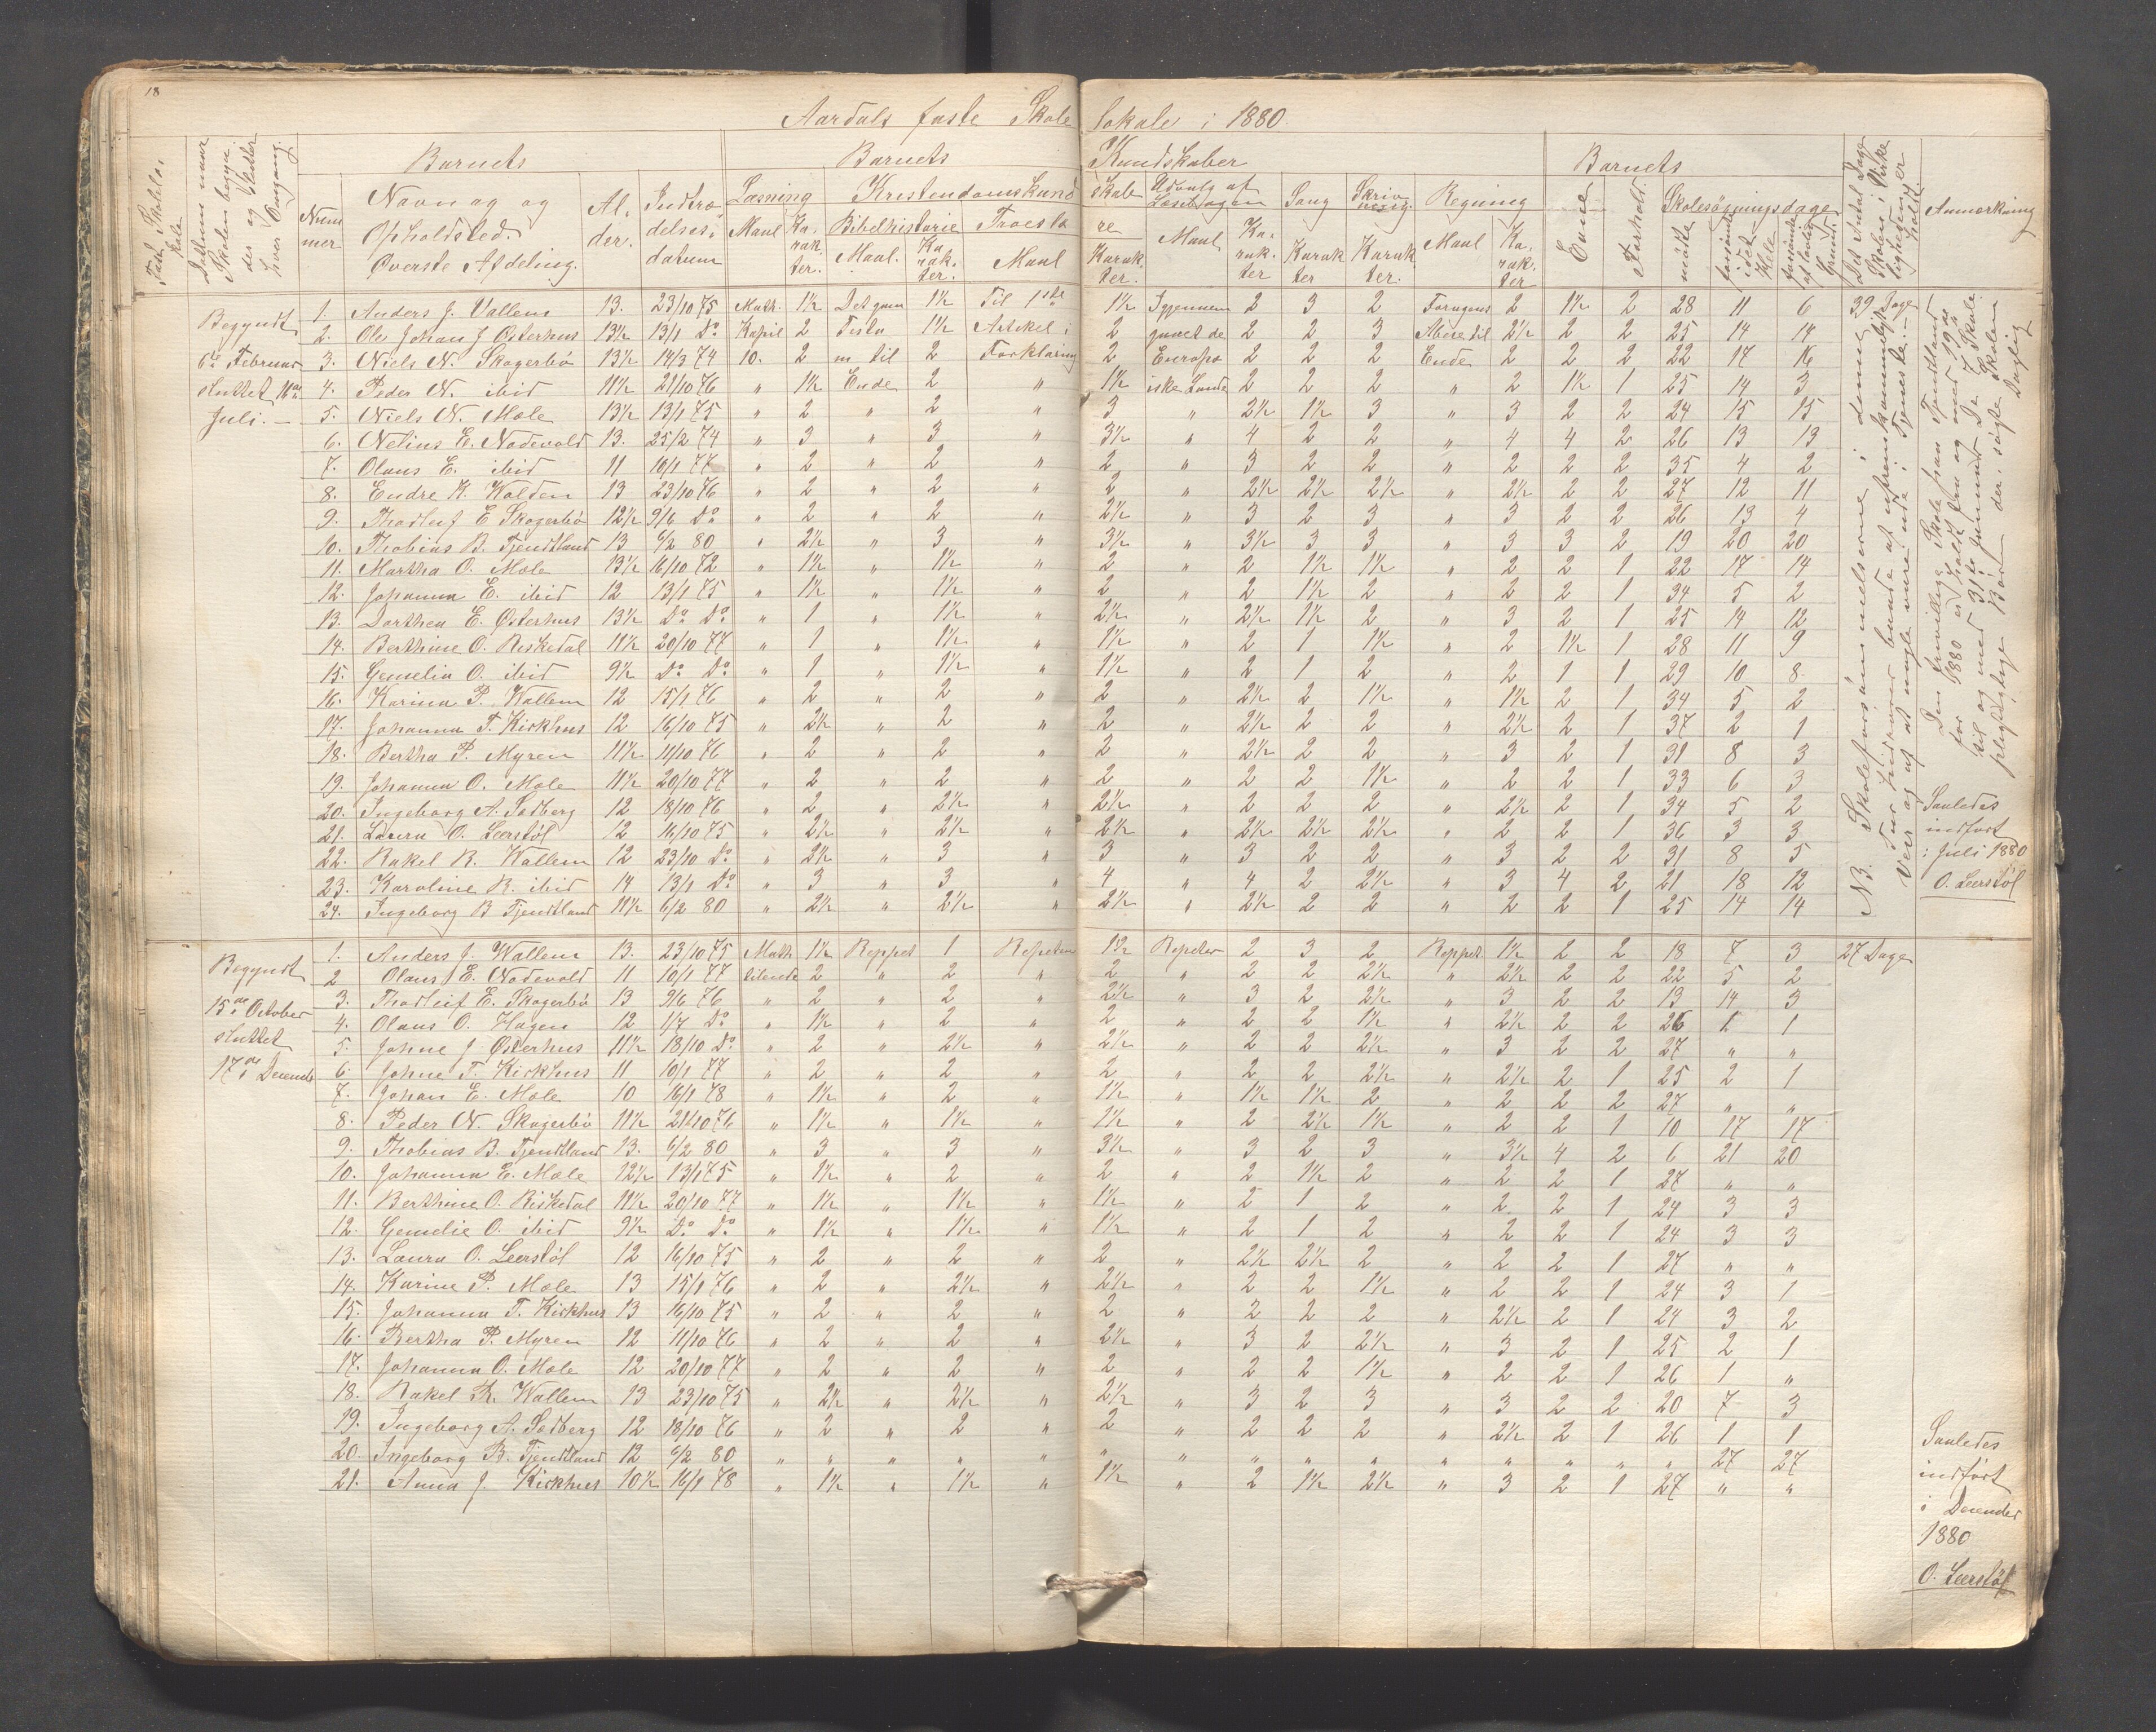 18
Aardals faste Skole lokale i 1880.
Barnets Barnets Kundskaber Barnets
Nummer Navn og Opholdsted. Øverste Afdeling. Alder. Indtrædelsesdatum Læsning Kristendomskundskab Udvalg af Læsebogen Sang Skrivning. Regning Evne Forhold Skolesøgningsdage Anmærkning
Maal Karakter. Bibelhistorie Maal. Karakter. Troeslære Maal Karakter. Maal Karakter Karakter Karakter. Maal Karakter mødte forsømte i det Hele forsømte af lovlig Grund
Begyndt 6te Februar sluttet 16de Juli. —
1. Anders J. Vallem 13. 23/10 75 Math. 1½ Det gam 1½ Til 1ste 1½ Igjennem 2 3 2 Forugens 2 1½ 2 28 11 6 39 Dage
2. Ole Johan J Østerhus 13½ 13/1 Do Kapit 2 Testa 1½ Artikel i 2 gaaet de 2 2 3 2½ 2 2 25 14 14
3. Niels N. Skogerbø 13½ 14/3 74 10. 2 m til 2 Forklaring 2 Europæ 2 2 2 Ende 2 2 2 22 17 16
4. Peder N. ibid 11½ 21/10 76 " 1½ Ende 2 " 1½ iske Lande 2 2 2 " 2 1½ 1 25 14 3
5. Niels N. Mæle 13½ 13/1 75 " 2 " 2 " 3 " 2½ 1½ 3 " 3 2 2 24 15 15
6. Nelius E. Nodevold 13. 25/2 74 " 3 " 3 " 3½ " 4 2 2 " 4 4 2 26 13 13
7. Olaus E. ibid 11 10/1 77 " 2 " 2 " 2 " 3 2 2 " 2 2 2 35 4 2
8. Endre K. Kolden 13 23/10 76 " 2 " 2 " 2 " 2½ 2½ 2½ " 2½ 2 2 27 12 11
9. Thorleif E Skogerbø 12½ 9/6 Do " 2 " 2 " 2½ " 3 2 3 " 3 2 2 26 13 4
10. Thobias B. Tjendtland 13 6/2 80 " 2½ " 3 " 3½ " 3½ 3 3 " 3 3 2 19 20 20
11. Martha O. Mæle 13½ 16/10 72 " 1½ " 1½ " 2 " 2 1½ 1½ " 2 2 1 22 17 14
12. Johanna E. ibid 12 13/1 75 " 1½ " 1½ " 2 " 2 1½ 2 " 2 2 1 34 5 2
13. Dorthea E. Østerhus 13½ Do Do " 1 " 1½ " 2½ " 2½ 1½ 2 " 3 2 1 25 14 12
14. Berthine O. Riskedal 11½ 20/10 77 " 1 " 1½ " 1½ " 2 1 1½ " 2 1½ 1 28 11 9
15. Gemelia O. ibid 9½ Do Do " 1 " 1½ " 1½ " 2 1 2 " 2 1 1 29 10 8
16. Karina P. Wallem 12 15/1 76 " 2 " 2 " 2 " 2½ 2 1½ " 1½ 2 1 34 5 2
17. Johanna T. Kirkhus 12 16/10 75 " 2½ " 2 " 2 " 2½ 2 2 " 2½ 2 1 37 2 1
18. Bertha P. Myren 11½ 11/10 76 " 2 " 2 " 2 " 2½ 2 2 " 3 2 1 31 8 3
19. Johanna O. Mæle 11½ 20/10 77 " 2 " 2 " 2 " 2 2 1½ " 2 2 1 33 6 3
20. Ingeborg A. Sedberg 12 18/10 76 " 2 " 2½ " 2½ " 2 2 2 " 2½ 2 1 34 5 2
21. Laura O. Leerstøl 12 16/10 75 " 2½ " 2½ " 2½ " 2½ 2½ 2½ " 2 2 1 36 3 3
22. Rakel R. Wallem 12 23/10 Do " 2½ " 3 " 3 " 3 2 2 " 3 2 2 31 8 5
23. Karoline R. ibid 14 13/1 Do " 3 " 3 " 4 " 4 2 2½ " 3 4 2 21 18 12
24. Ingeborg B Tjendtland 11½ 6/2 80 " 2½ " 2½ " 2½ " 2½ 2 2 " 2 2 1 25 14 14
NB. Skoleforsømmelserne i denne
Tur hidrører baade af ufremkommeligt
Veir og af at nogle vare ude i Tjeneste. —
Den frivillige Skole paa Tjendtland
for 1880 er holdt fra og med 19de
til og med 31te Januar. De 7 Skole
pligtige Børn der, søgte Skolen
Daglig
Saaledes
indført
i Juli 1880
O. Leerstøl
Begyndt 15de October sluttet 17de Decemb
1. Anders J. Wallem 13. 23/10 75 Math 1½ Reppet 1 Repeten 1½ Repeter 2 3 2 Reppet 1½ 2 2 18 7 3 27 Dage
2 Olaus E. Nodevold 11 10/1 77 tilende 2 " 2 " 2 " 2 2 2½ " 2½ 2 2 22 5 2
3. Thorleif E. Skogerbø 13 9/6 76 " 2 " 2 " 2½ " 3 2 2½ " 3 2 2 13 14 3
4. Olaus O. Hagen 12 1/7 Do " 1½ " 2 " 2 " 2 2 1½ " 2½ 2 2 26 1 1
5. Johne J Østerhus 11½ 18/10 Do " 2 " 2½ " 2½ " 2 2 2½ " 3 2 2 27 " "
6 Johne T. Kirkhus 11 10/1 77 " 2 " 2 " 2 " 2 2 2½ " 2½ 2 1 25 2 1
7. Johan E. Mæle 10 16/1 78 " 1½ " 2 " 1½ " 1½ 1½ 2 " 2 2 2 27 " "
8. Peder N. Skogerbø 11½ 21/10 76 " 1½ " 1½ " 1½ " 2 2½ 1½ " 2 2 1 10 17 17
9. Thobias B. Tjendtland 13. 6/2 80 " 3 " 3 " 3½ " 3 2 3 " 3½ 4 2 6 21 20
10. Johanna E. Mæle 12½ 13/1 75 " 1½ " 2 " 2 " 2 1½ 2 " 2 2 1 27 " "
11. Berthine O. Riskedal 11½ 20/10 77 " 1½ " 1½ " 1½ " 2 1 2 " 2 2 1 24 3 3
12. Gemelie O. ibid 9½ Do Do " 1½ " 1½ " 1½ " 2 1 2 " 2 2 1 24 3 3
13. Laura O. Leerstøl 12 16/10 75 " 2 " 2 " 2 " 2½ 2½ 2 " 2 2 1 27 " "
14. Karine P. Mæle 13 15/1 76 " 2 " 2½ " 2½ " 2 2 1½ " 2 2 1 24 3 1
15. Johanna T. Kirkhus 13 16/10 75 " 2 " 2 " 2 " 2 2 2 " 2½ 2 1 24 3 2
16. Bertha P. Myren 12 11/10 76 " 2 " 2 " 2½ " 3 2 2½ " 3 2 1 25 2 1
17. Johanna O. Mæle 12 20/10 77 " 2 " 2 " 2 " 2 2 1½ " 2 2 1 26 1 "
18. Rakel R. Wallem 13 23/10 75 " 2½ " 2½ " 2½ " 3 2 3 " 3 2 2 20 7 3
19. Ingeborg A. Sedberg 12 18/10 76 " 2 " 2 " 2 " 2 2 2 " 2½ 2 1 26 1 1
20. Ingeborg B. Tjendtland 12 6/2 80 " " " " " " " " " " " " " " " 27 27
21. Anna J. Kirkhus 10½ 16/1 78 " 1½ " 1½ " 1½ " 2 1½ 2½ " 3 2 1 27 " "
Saaledes
indført
i December
1880
O. Leerstøl